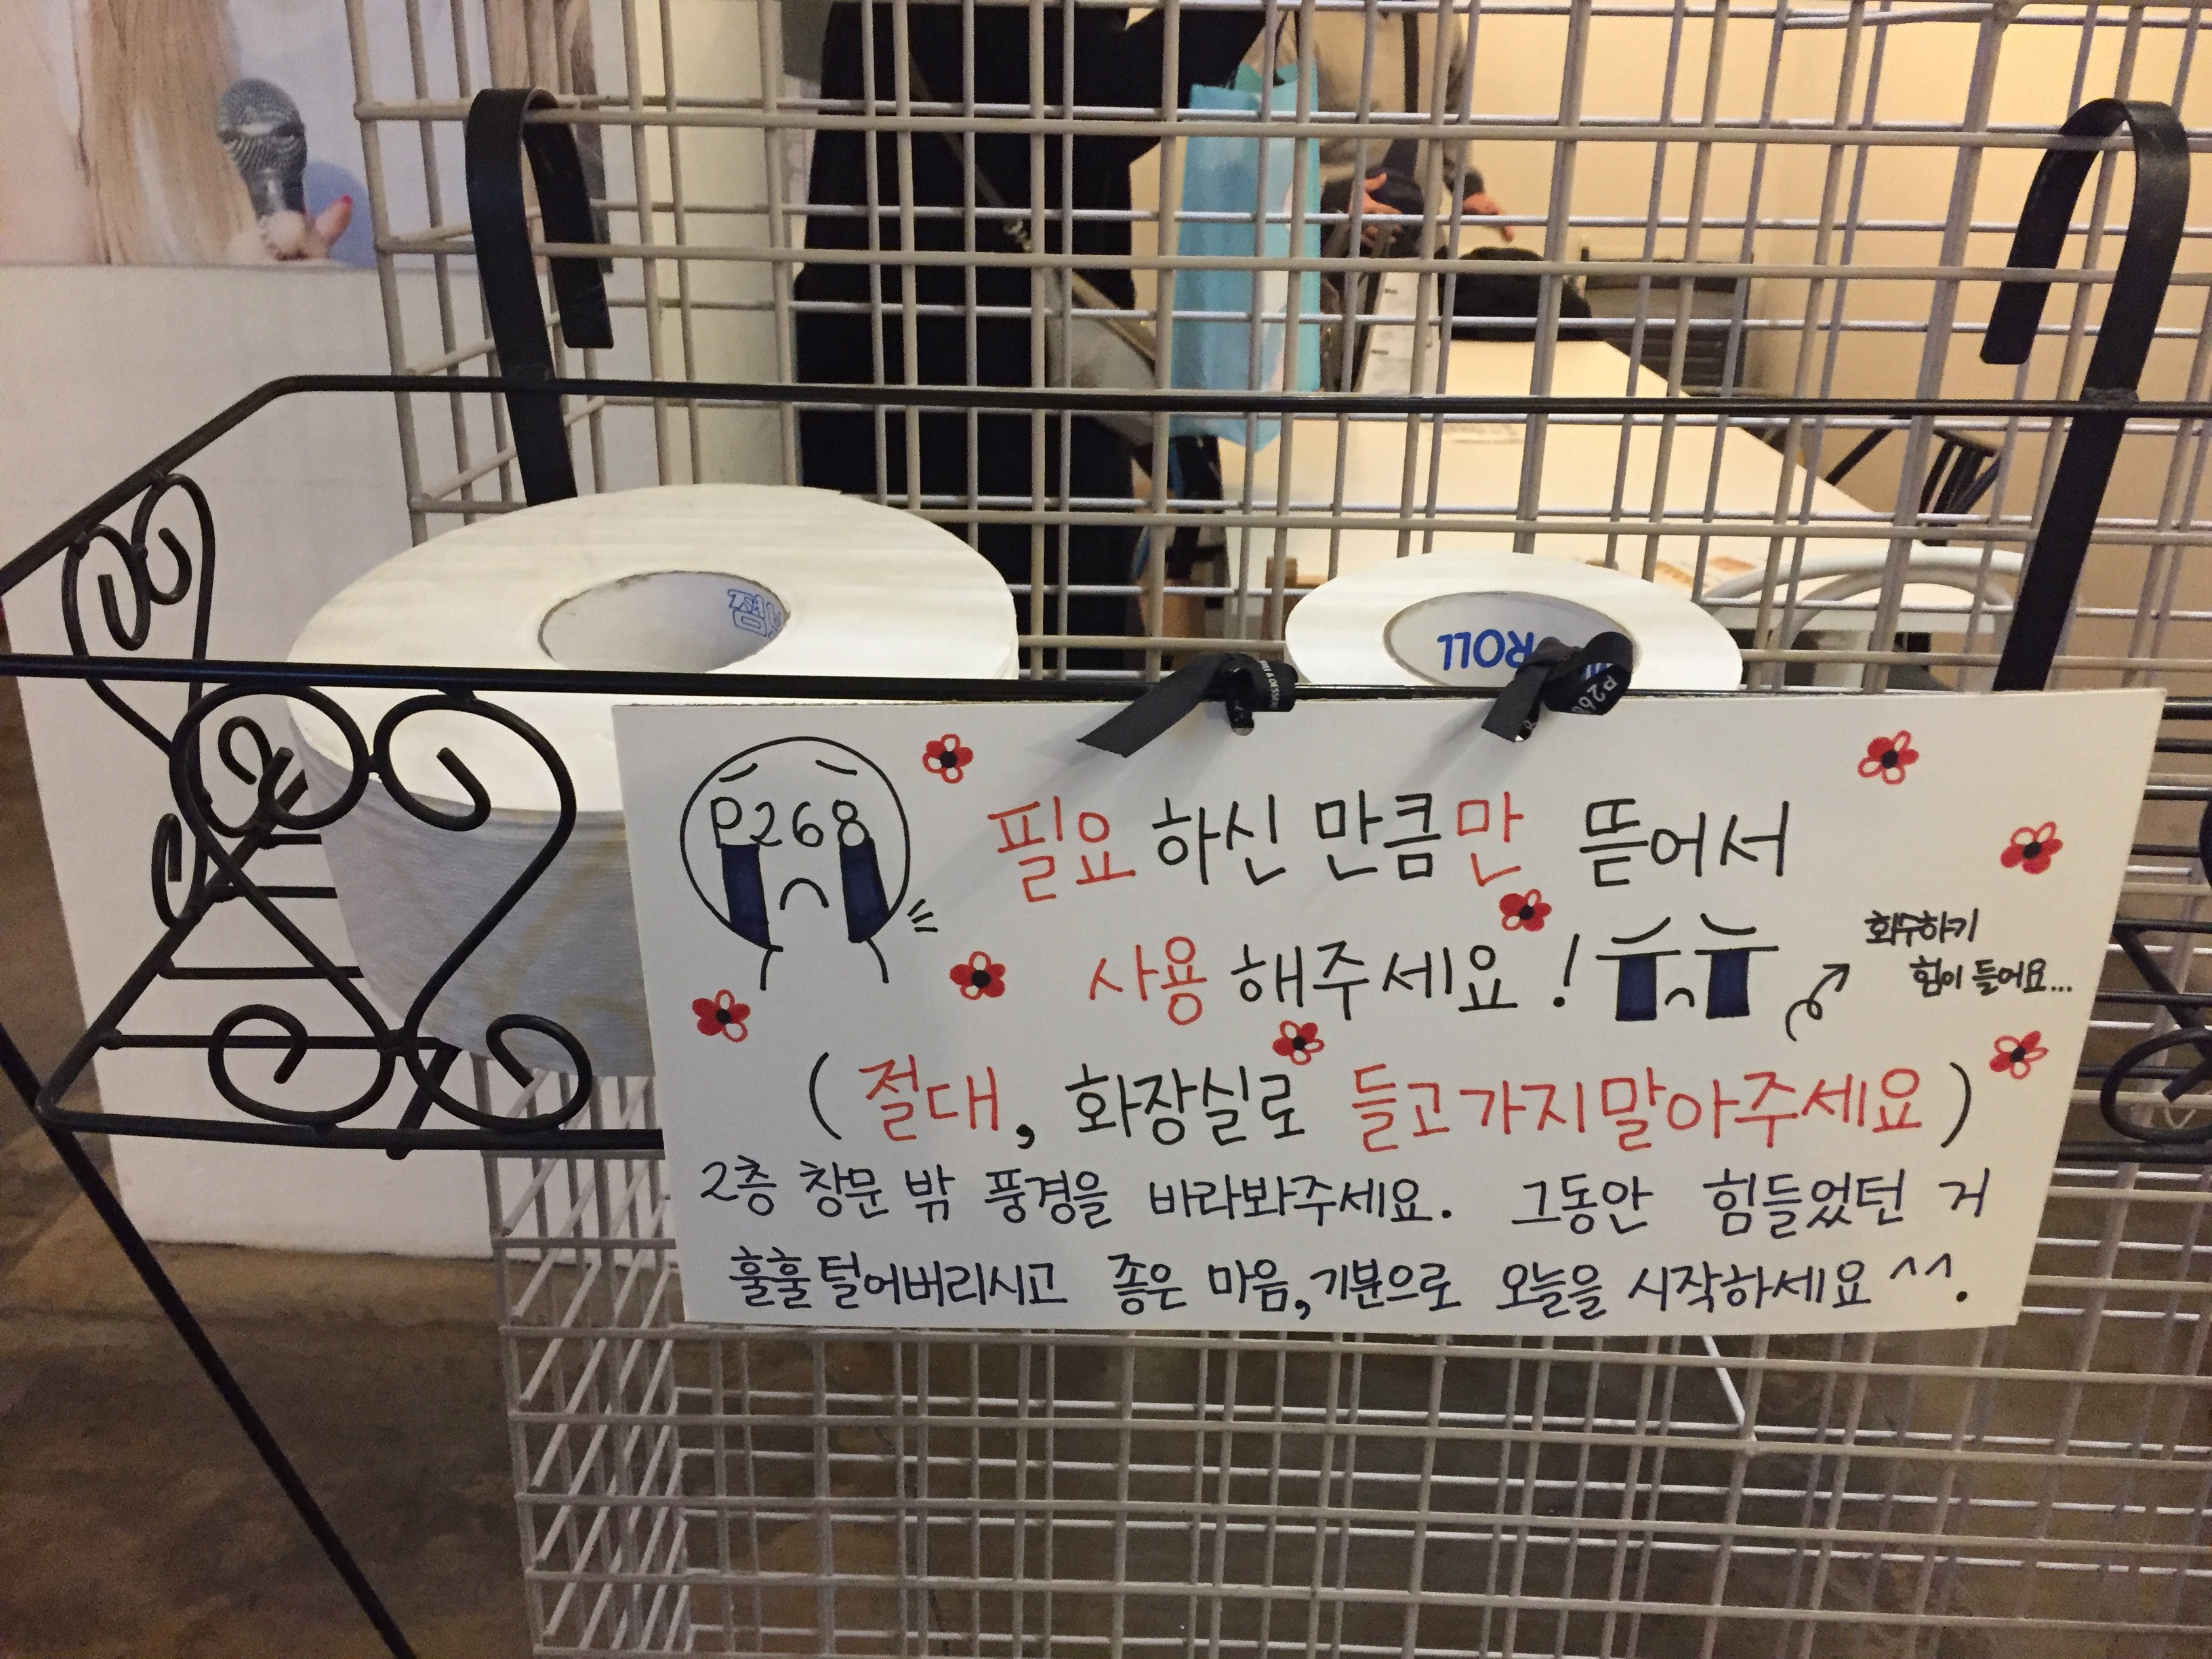 점보
ROLL
P268
P268
필요 하신 만큼만 뜯어서
사용 해주세요!
회수하기
힘이 들어요...
(절대, 화장실로 들고가지말아주세요)
2층 창문 밖 풍경을 바라봐주세요. 그동안 힘들었던 거
훌훌 털어버리시고 좋은 마음, 기분으로 오늘을 시작하세요^^.